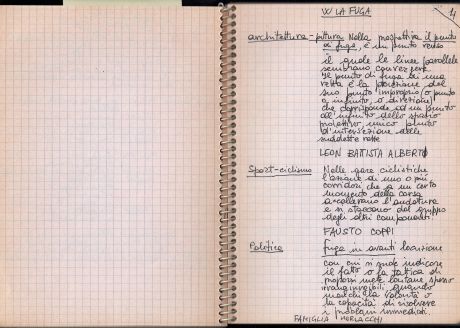 W LA FUGA
4
architettura-pittura Nella prospettiva il punto
di fuga, è un punto verso
il quale le linee parallele
sembrano convergere.
Il punto di fuga di una
retta è la proiezione del
suo punto improprio (o punto
a infinito, o direzione)
che corrisponde ad un punto
all'infinito dello spazio
proiettivo, unico punto
d'intersezione delle
suddette rette
LEON BATTISTA ALBERTI
Sport-ciclismo Nelle gare ciclistiche
l'azione di uno o più
corridori che a un certo
momento della corsa
accelerano l'andatura
e si staccano dal gruppo
degli altri componenti.
FAUSTO COPPI
Politica fuga in avanti locuzione
con cui si vuole indicare
il fatto o la tattica di
proporsi mete lontane, spesso
irraggiungibili, quando
manchi la volontà o
la capacità di risolvere
i problemi immediati.
FAMIGLIA